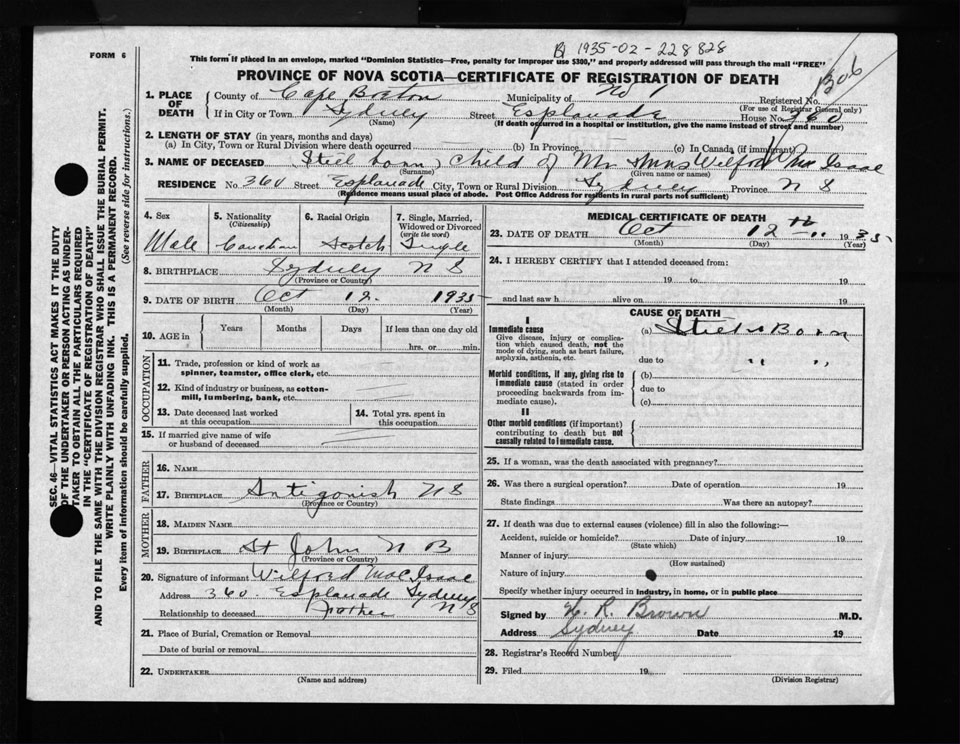 B 1935-02-228828
FORM 6
This form if placed in an envelope, marked "Dominion Statistics—Free, penalty for improper use $300," and properly addressed will pass through the mail "FREE"
PROVINCE OF NOVA SCOTIA—CERTIFICATE OF REGISTRATION OF DEATH
1306
1. PLACE OF DEATH
County of Cape Breton Municipality of No 1 Registered No.
(For use of Registrar General only)
If in City or Town Sydney Street Esplanade House No. 360
(Name) (If death occurred in a hospital or institution, give the name instead of street and number)
2. LENGTH OF STAY (in years, months and days)
(a) In City, Town or Rural Division where death occurred (b) In Province (c) In Canada (if immigrant)
3. NAME OF DECEASED Still born child of Mr & Mrs Wilford Mac Isaac
(Surname) (Given name or names)
RESIDENCE No. 360 Street Esplanade City, Town or Rural Division Sydney Province N S
(Residence means usual place of abode. Post Office Address for residents in rural parts not sufficient)
4. Sex
Male
5. Nationality
(Citizenship)
Canadian
6. Racial Origin
Scotch
7. Single, Married, Widowed or Divorced
(write the word)
Single
8. BIRTHPLACE Sydney N S
(Province or Country)
9. DATE OF BIRTH Oct 12. 1935
(Month) (Day) (Year)
10. AGE in
Years Months Days If less than one day old
hrs. or min.
OCCUPATION
11. Trade, profession or kind of work as spinner, teamster, office clerk, etc.
12. Kind of industry or business, as cotton-mill, lumbering, bank, etc.
13. Date deceased last worked at this occupation
14. Total yrs. spent in this occupation
15. If married give name of wife or husband of deceased
FATHER
16. Name
17. Birthplace Antigonish N S
(Province or Country)
MOTHER
18. Maiden Name
19. Birthplace St John N B
(Province or Country)
20. Signature of informant Wilford MacIsaac
Address 360 Esplanade Sydney
Relationship to deceased Father N S
21. Place of Burial, Cremation or Removal
Date of burial or removal
22. Undertaker
(Name and address)
MEDICAL CERTIFICATE OF DEATH
23. DATE OF DEATH Oct 12th 1935
(Month) (Day) (Year)
24. I HEREBY CERTIFY that I attended deceased from:
19 to 19
and last saw h alive on 19
CAUSE OF DEATH
I
Immediate cause
Give disease, injury or complication which caused death, not the mode of dying, such as heart failure, asphyxia, asthenia, etc.
(a) Still Born
due to " "
Morbid conditions, if any, giving rise to immediate cause (stated in order proceeding backwards from immediate cause).
(b)
due to
(c)
II
Other morbid conditions (if important) contributing to death but not causally related to immediate cause.
25. If a woman, was the death associated with pregnancy?
26. Was there a surgical operation? Date of operation 19
State findings Was there an autopsy?
27. If death was due to external causes (violence) fill in also the following:—
Accident, suicide or homicide? Date of injury 19
(State which)
Manner of injury
(How sustained)
Nature of injury
Specify whether injury occurred in industry, in home, or in public place
Signed by R. Brown M.D.
Address Sydney Date 19
28. Registrar's Record Number
29. Filed 19
(Division Registrar)
SEC. 46—VITAL STATISTICS ACT MAKES IT THE DUTY
OF THE UNDERTAKER OR PERSON ACTING AS UNDER-
TAKER TO OBTAIN ALL THE PARTICULARS REQUIRED
IN THE "CERTIFICATE OF REGISTRATION OF DEATH"
AND TO FILE THE SAME WITH THE DIVISION REGISTRAR WHO SHALL ISSUE THE BURIAL PERMIT.
WRITE PLAINLY WITH UNFADING INK. THIS IS A PERMANENT RECORD.
Every item of information should be carefully supplied. (See reverse side for instructions.)